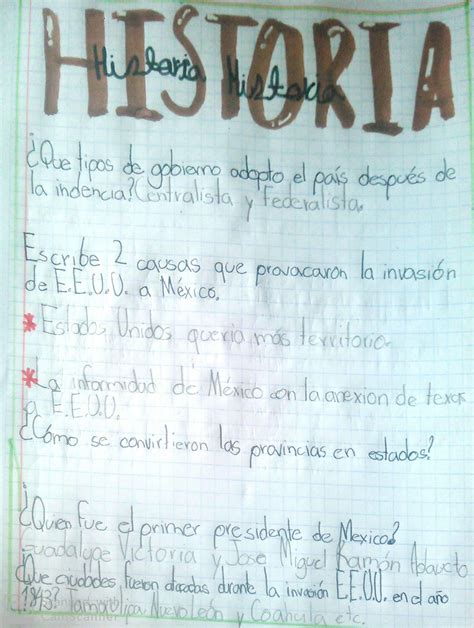 HISTORIA
Historia Historia
¿Que tipos de gobierno adopto el país después de
la indencia? Centralista y Federalista.
Escribe 2 causas que provacaron la invasión
de E.E.U.U. a México.
* Estados Unidos queria más territorio
* La informidad de México con la anexion de texas
a E.E.U.U.
¿Cómo se convirtieron las provincias en estados?
¿Quien fue el primer presidente de Mexico?
Guadalupe Victoria y Jose Miguel Ramón Adaucto
¿Que ciudades fueron atacadas durante la invasión E.E.U.U. en el año
Nuevo león y Coahuila etc.
CamScanner